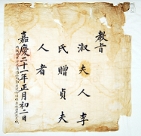 敎旨
淑夫人李
氏贈貞夫
人者
嘉慶二十一年正月初二日